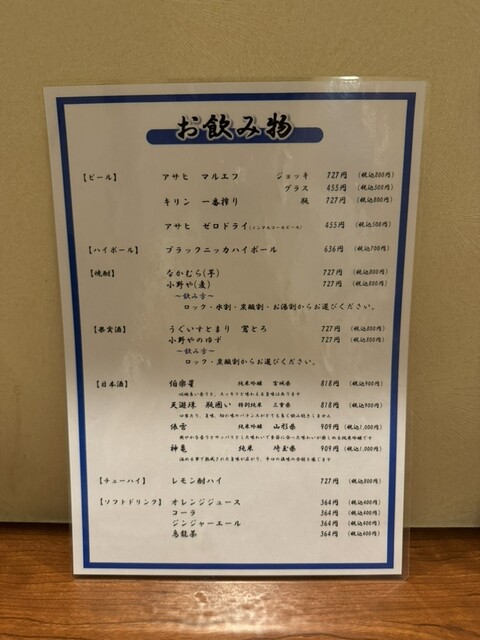 お飲み物
【ビール】 アサヒ マルエフ ジョッキ 727円 (税込800円)
グラス 455円 (税込500円)
キリン 一番搾り 瓶 727円 (税込800円)
アサヒ ゼロドライ(ノンアルコールビール) 455円 (税込500円)
【ハイボール】 ブラックニッカハイボール 636円 (税込700円)
【焼酎】 なかむら(芋) 727円 (税込800円)
小野や(麦) 727円 (税込800円)
～飲み方～
ロック・水割・炭酸割・お湯割からお選びください。
【果実酒】 うぐいすとまり 鶯とろ 727円 (税込800円)
小野やのゆず 727円 (税込800円)
～飲み方～
ロック・炭酸割からお選びください。
【日本酒】 伯楽星 純米吟醸 宮城県 818円 (税込900円)
天遊琳 瓶囲い 特別純米 三重県 818円 (税込900円)
俵雪 純米吟醸 山形県 909円 (税込1,000円)
神亀 純米 埼玉県 909円 (税込1,000円)
【チューハイ】 レモン酎ハイ 727円 (税込800円)
【ソフトドリンク】 オレンジジュース 364円 (税込400円)
コーラ 364円 (税込400円)
ジンジャーエール 364円 (税込400円)
烏龍茶 364円 (税込400円)